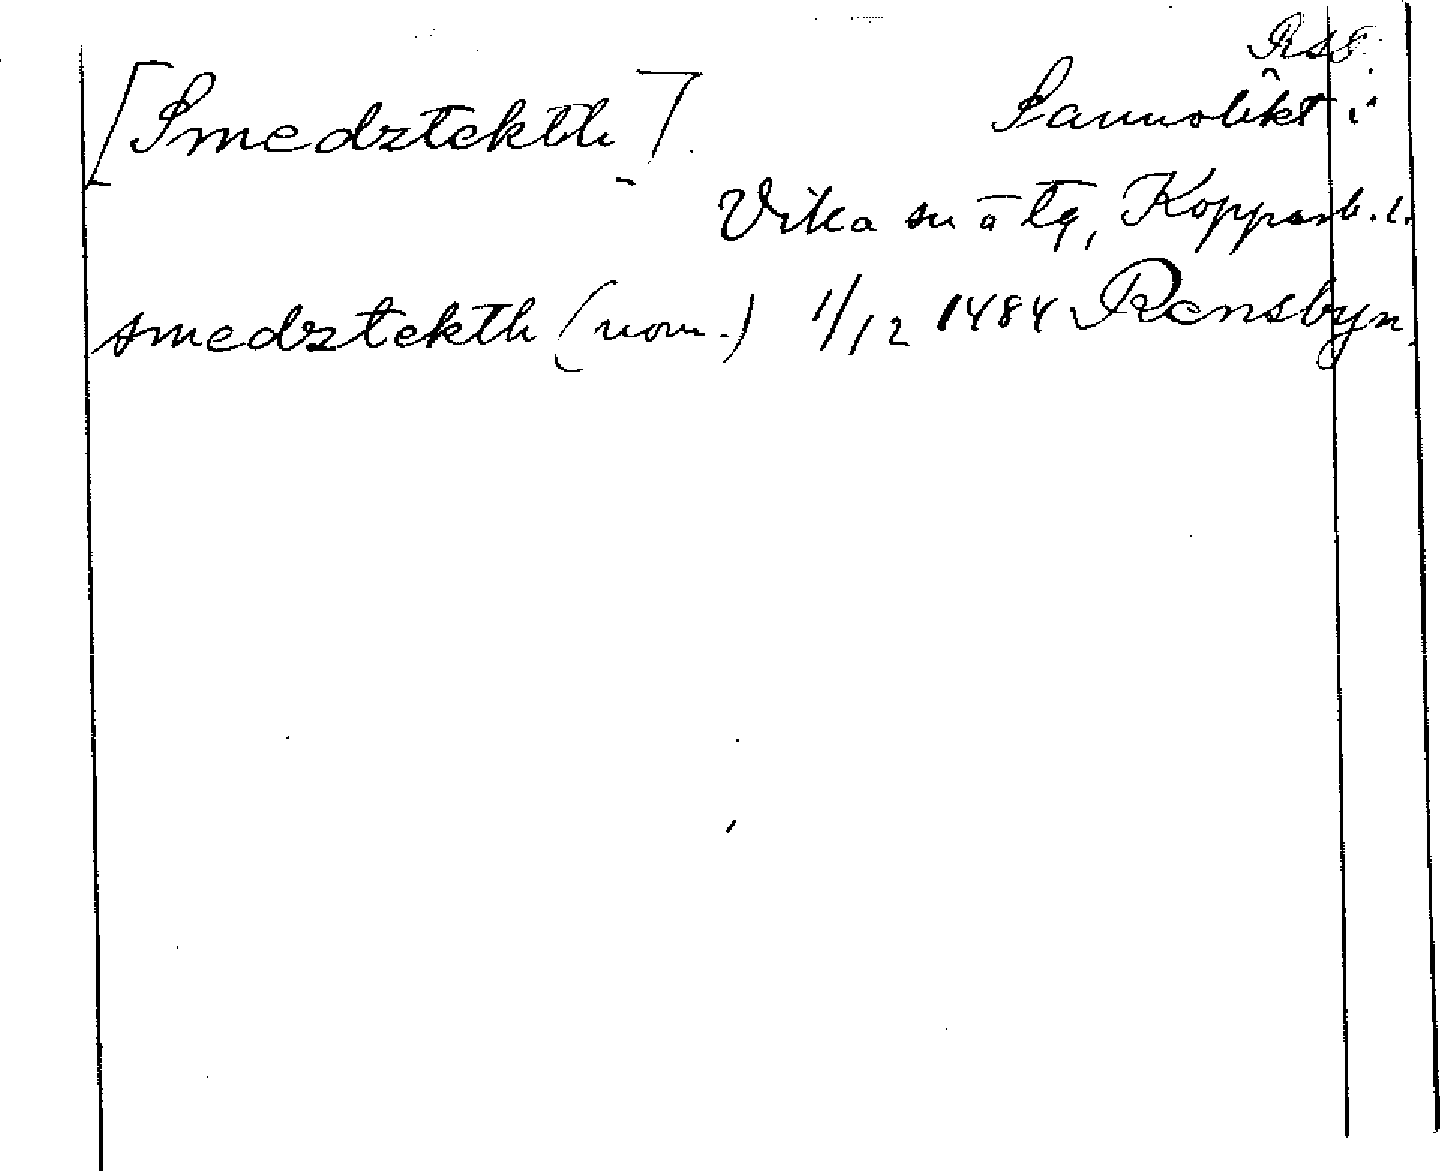 RSF.
[Smedztekth]. Sannolikt i
Vika sn ō tg, Kopparb. l.
smedztekth (nom.) 1/12 1484 Rensbyn.